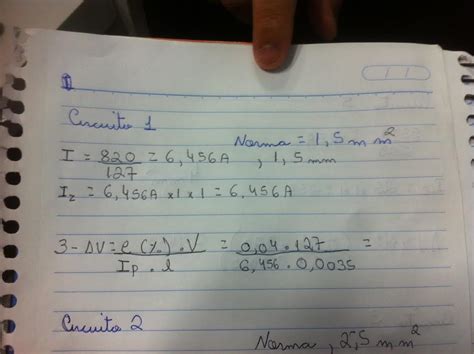 Circuito 1
Norma = 1,5 mm²
I = 820/127 = 6,456A , 1,5mm
I₂ = 6,456A x 1 x 1 = 6,456A
3 - ΔV = e(%) . V / Ip . l = 0,04 . 127 / 6,456 . 0,0035 =
Circuito 2
Norma , 2,5 mm²